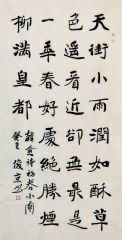 天街小雨潤如酥草
色遥看近却無最是
一年春好處絕勝煙
柳滿皇都
韓愈詩初春小雨